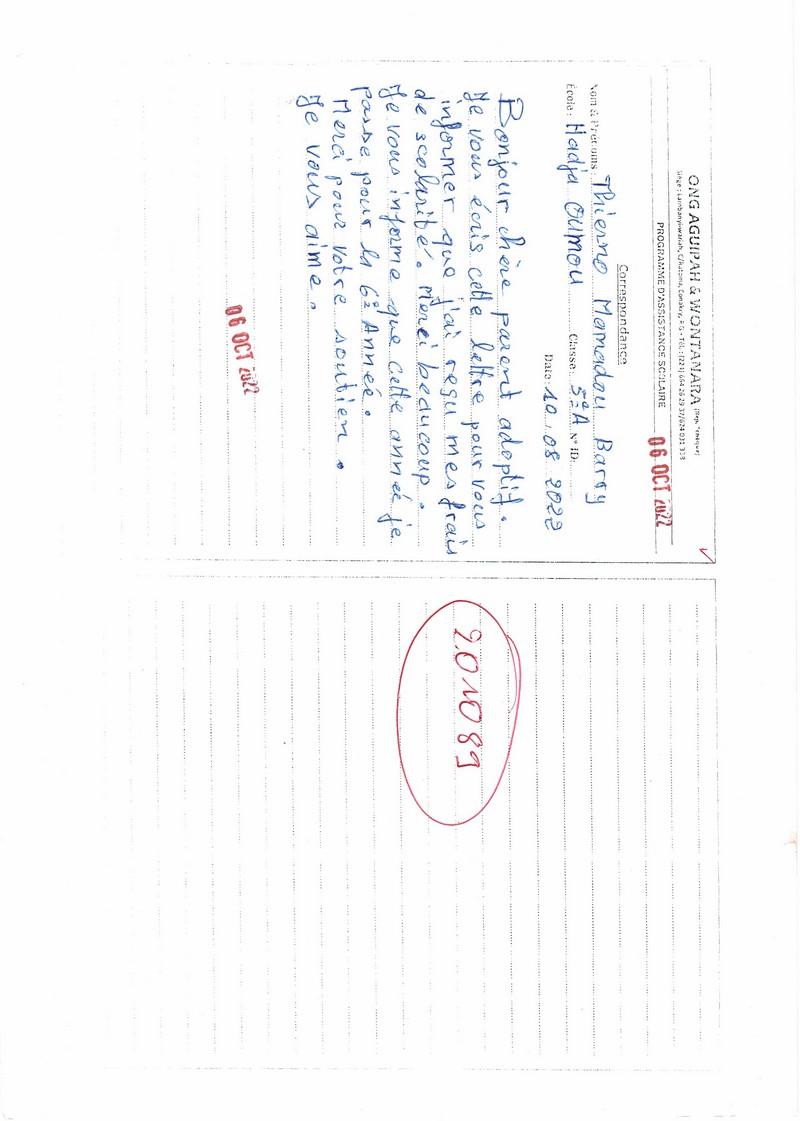 ONG AGUIPAH & WONTANARA
PROGRAMME D'ASSISTANCE SCOLAIRE
06 OCT 2022
Correspondance
Nom & Prénoms: Thierno Mamadou Barry
École: Hadja Oumou Classe: 5e A N° ID:
Date: 10.08 2022
Bonjour chère parent adoptif.
Je vous écris cette lettre pour vous
informer que j'ai reçu mes frais
de scolarité. Merci beaucoup.
Je vous informe que cette année je
passe pour la 6e Année.
Merci pour votre soutien.
Je vous aime.
06 OCT 2022
201089